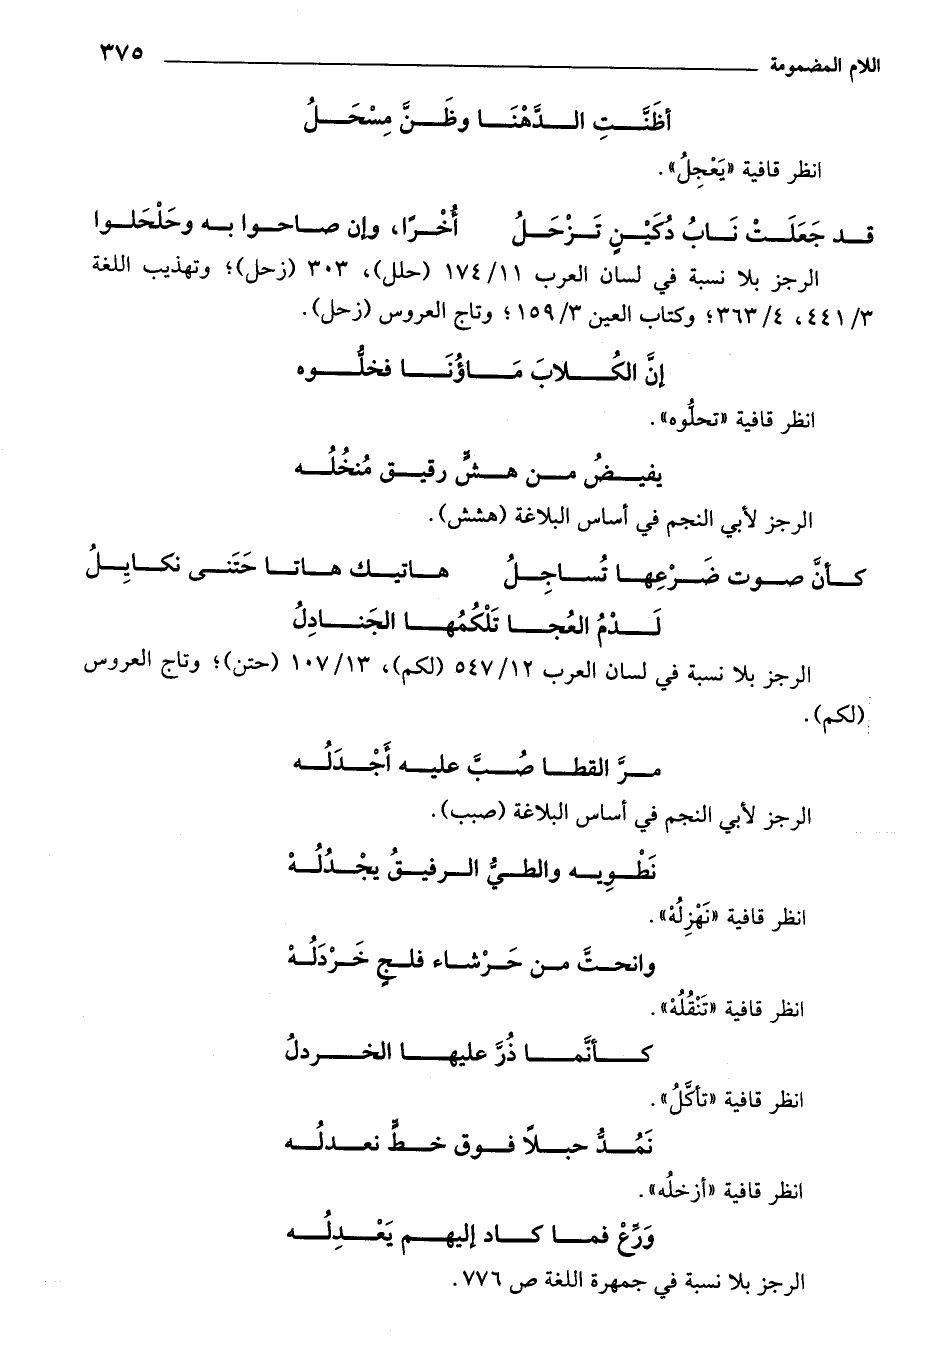 اللام المضمومة ٣٧٥
أظَنَّتِ الدَّهْنَا وظَنَّ مِسْحَلُ
انظر قافية «يَعْجِلُ».
قد جَعَلَتْ نَابُ دُكَيْنٍ تَزْحَلُ أُخْرًا، وإن صاحوا به وحَلْحَلوا
الرجز بلا نسبة في لسان العرب ١٧٤/١١ (حلل)، ٣٠٣ (زحل)؛ وتهذيب اللغة
٤٤١/٣، ٣٦٣/٤؛ وكتاب العين ١٥٩/٣؛ وتاج العروس (زحل).
إنَّ الكُلابَ مَاؤُنَا فخلُّوه
انظر قافية «تحلُّوه».
يفيضُ من هشٍّ رقيق مُنخُلُه
الرجز لأبي النجم في أساس البلاغة (هشش).
كأنَّ صوت ضَرْعِها تُساجِلُ هاتيك هاتا حَتَنى نكايِلُ
لَدْمُ العُجا تَلْكُمُها الجَنادِلُ
الرجز بلا نسبة في لسان العرب ٥٤٧/١٢ (لكم)، ١٠٧/١٣ (حتن)؛ وتاج العروس
(لكم).
مرَّ القطا صُبَّ عليه أَجْدَلُه
الرجز لأبي النجم في أساس البلاغة (صبب).
نَطْوِيه والطيُّ الرفيقُ يجْدُلُهْ
انظر قافية «نَهْزِلُهْ».
وانحتَّ من حَرْشاء فلجٍ خَرْدَلُهْ
انظر قافية «تَنْقُلُهْ».
كأنَّما ذُرَّ عليها الخردلُ
انظر قافية «تأكَّلُ».
نَمُدُّ حبلاً فوق خطٍّ نعدلُه
انظر قافية «أزخلُه».
وَرِّعْ فما كاد إليهم يَعْدِلُه
الرجز بلا نسبة في جمهرة اللغة ص ٧٧٦.